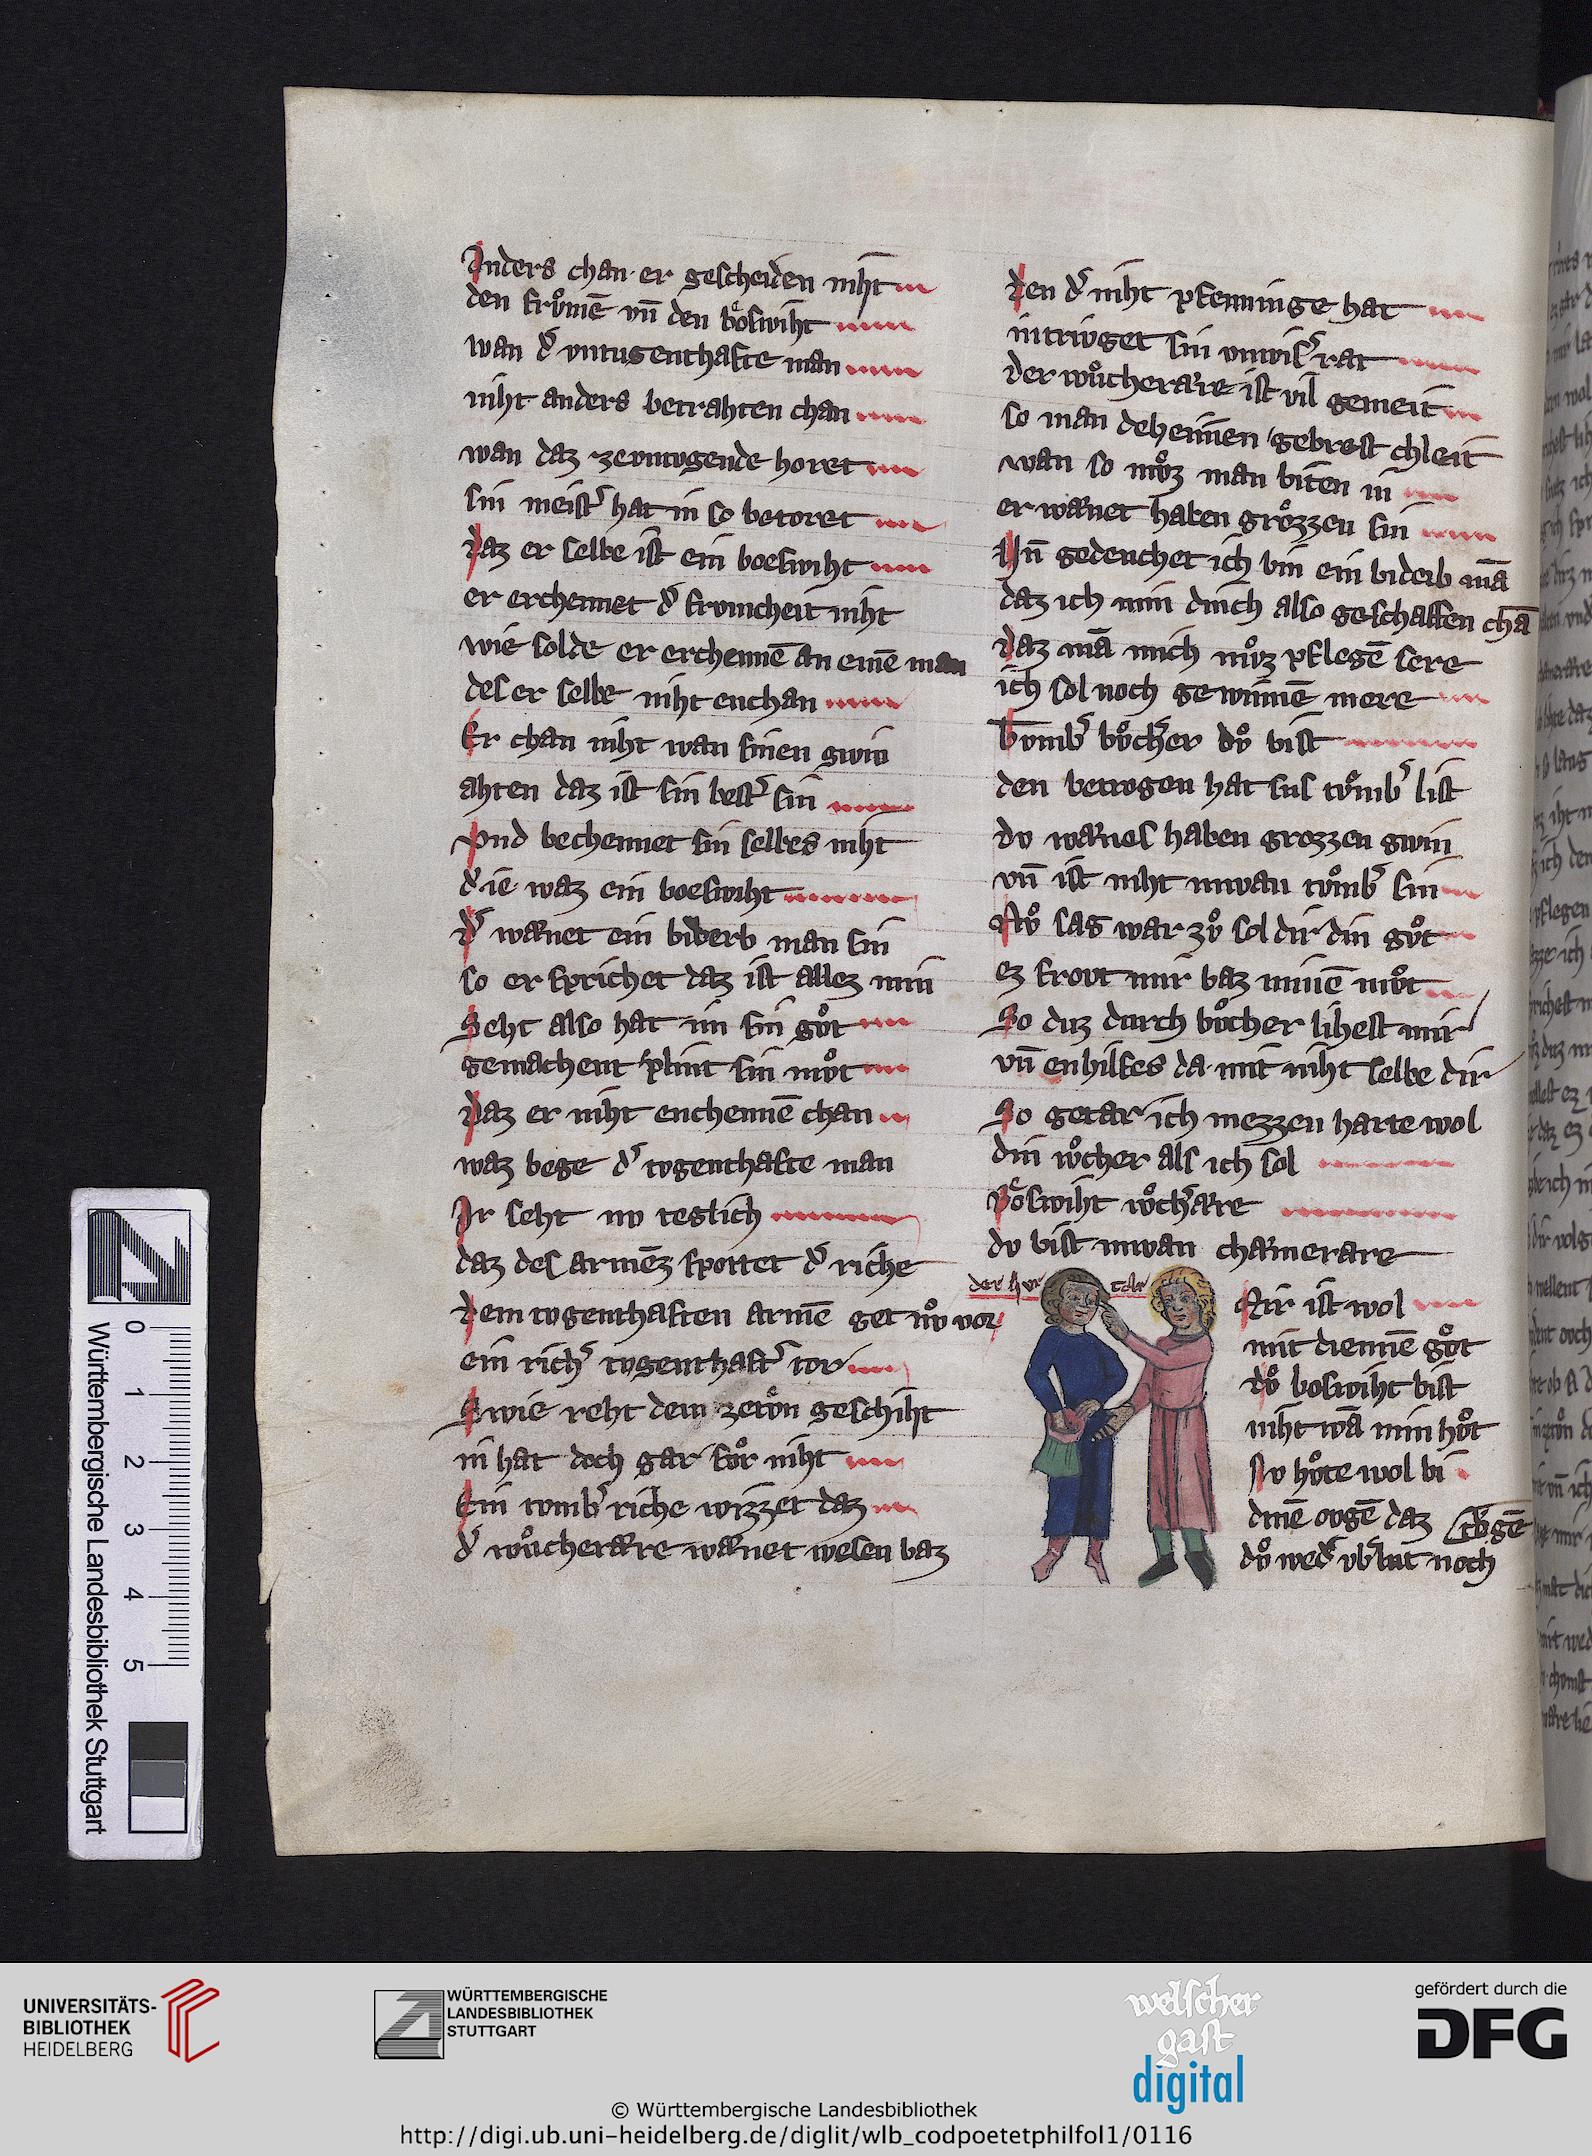 Anders chan er gescheiden niht
den frůmē vn̄ den bôswiht
wan d̾ vntugenthafte man
niht anders betrahten chan
wan daz zevntvgende horet
sin meist̾ hat in so betoret
Daz er selbe ist ein boeswiht
er erchennet d̾ frvmcheit niht
wie solde er erchennē an einē man
des er selbe niht enchan
Er chan niht wan sinen gwin
ahten daz ist sin best̾ sin
vnd bechennet sin selbes niht
d̾ ie waz ein boeswiht
d̾ wænet ein biderb man sin
so er sprichet daz ist allez min
Seht also hat im sin gv̊t
gemachent plint sin mv̊t
Daz er niht enchennē chan
waz bege d̾ tvgenthafte man
Ir seht nv teglich
daz des armēz spottet d̾ riche
Dem tvgenthaften armē get nv̊ vor
ein rich̾ tvgenthaft̾ tor
Swie reht dem zetv̊n geschiht
in hat doch gar fv̊r niht
Ein tvmb̾ riche wizzet daz
d̾ wůcherære wænet wesen baz
Den d̾ niht pfenninge hat
in trivget sin vnwis̾ rat
der wůcherære ist vil gemeit
so man deheinen gebrest chleit
wan so mv̊z man biten in
er wænet haben grôzzen sin
Vn̄ gedenchet ich bin ein biderb mā
daz ich min dinch also geschaffen chā
Daz mā mich mv̊z pflegē sere
ich sol noch gewinnē mere
Tvmb̾ vv̊ch̾er dv̊ bist
den betrogen hat sus tv̊mb̾ list
dv wænes haben grozzen gwin
vn̄ ist niht nwan tv̊mb̾ sin
Nv̊ sag war zv̊ sol dir din gv̊t
ez frovt mir baz minē mv̊t
So duz durch vv̊cher lihest mir
vn̄ enhilfes da mit niht selbe dir
So getar ich mezzen harte wol
din wv̊cher als ich sol
Bôswiht wv̊ch̾ære
dv bist nwan chamerære
der her
tor
Mir ist wol
mit dienne gv̊t
dv̊ boswiht bist
niht wā min hv̊t
Nv hv̊te wol bi
dinē ovgē daz
dv̊ wed̾ vb̾lut noch
tv̊gē
Württembergische Landesbibliothek Stuttgart
0
1
2
3
4
5
UNIVERSITÄTS-
BIBLIOTHEK
HEIDELBERG
WÜRTTEMBERGISCHE
LANDESBIBLIOTHEK
STUTTGART
welscher
gast
digital
gefördert durch die
DFG
© Württembergische Landesbibliothek
http://digi.ub.uni-heidelberg.de/diglit/wlb_codpoetetphilfol1/0116